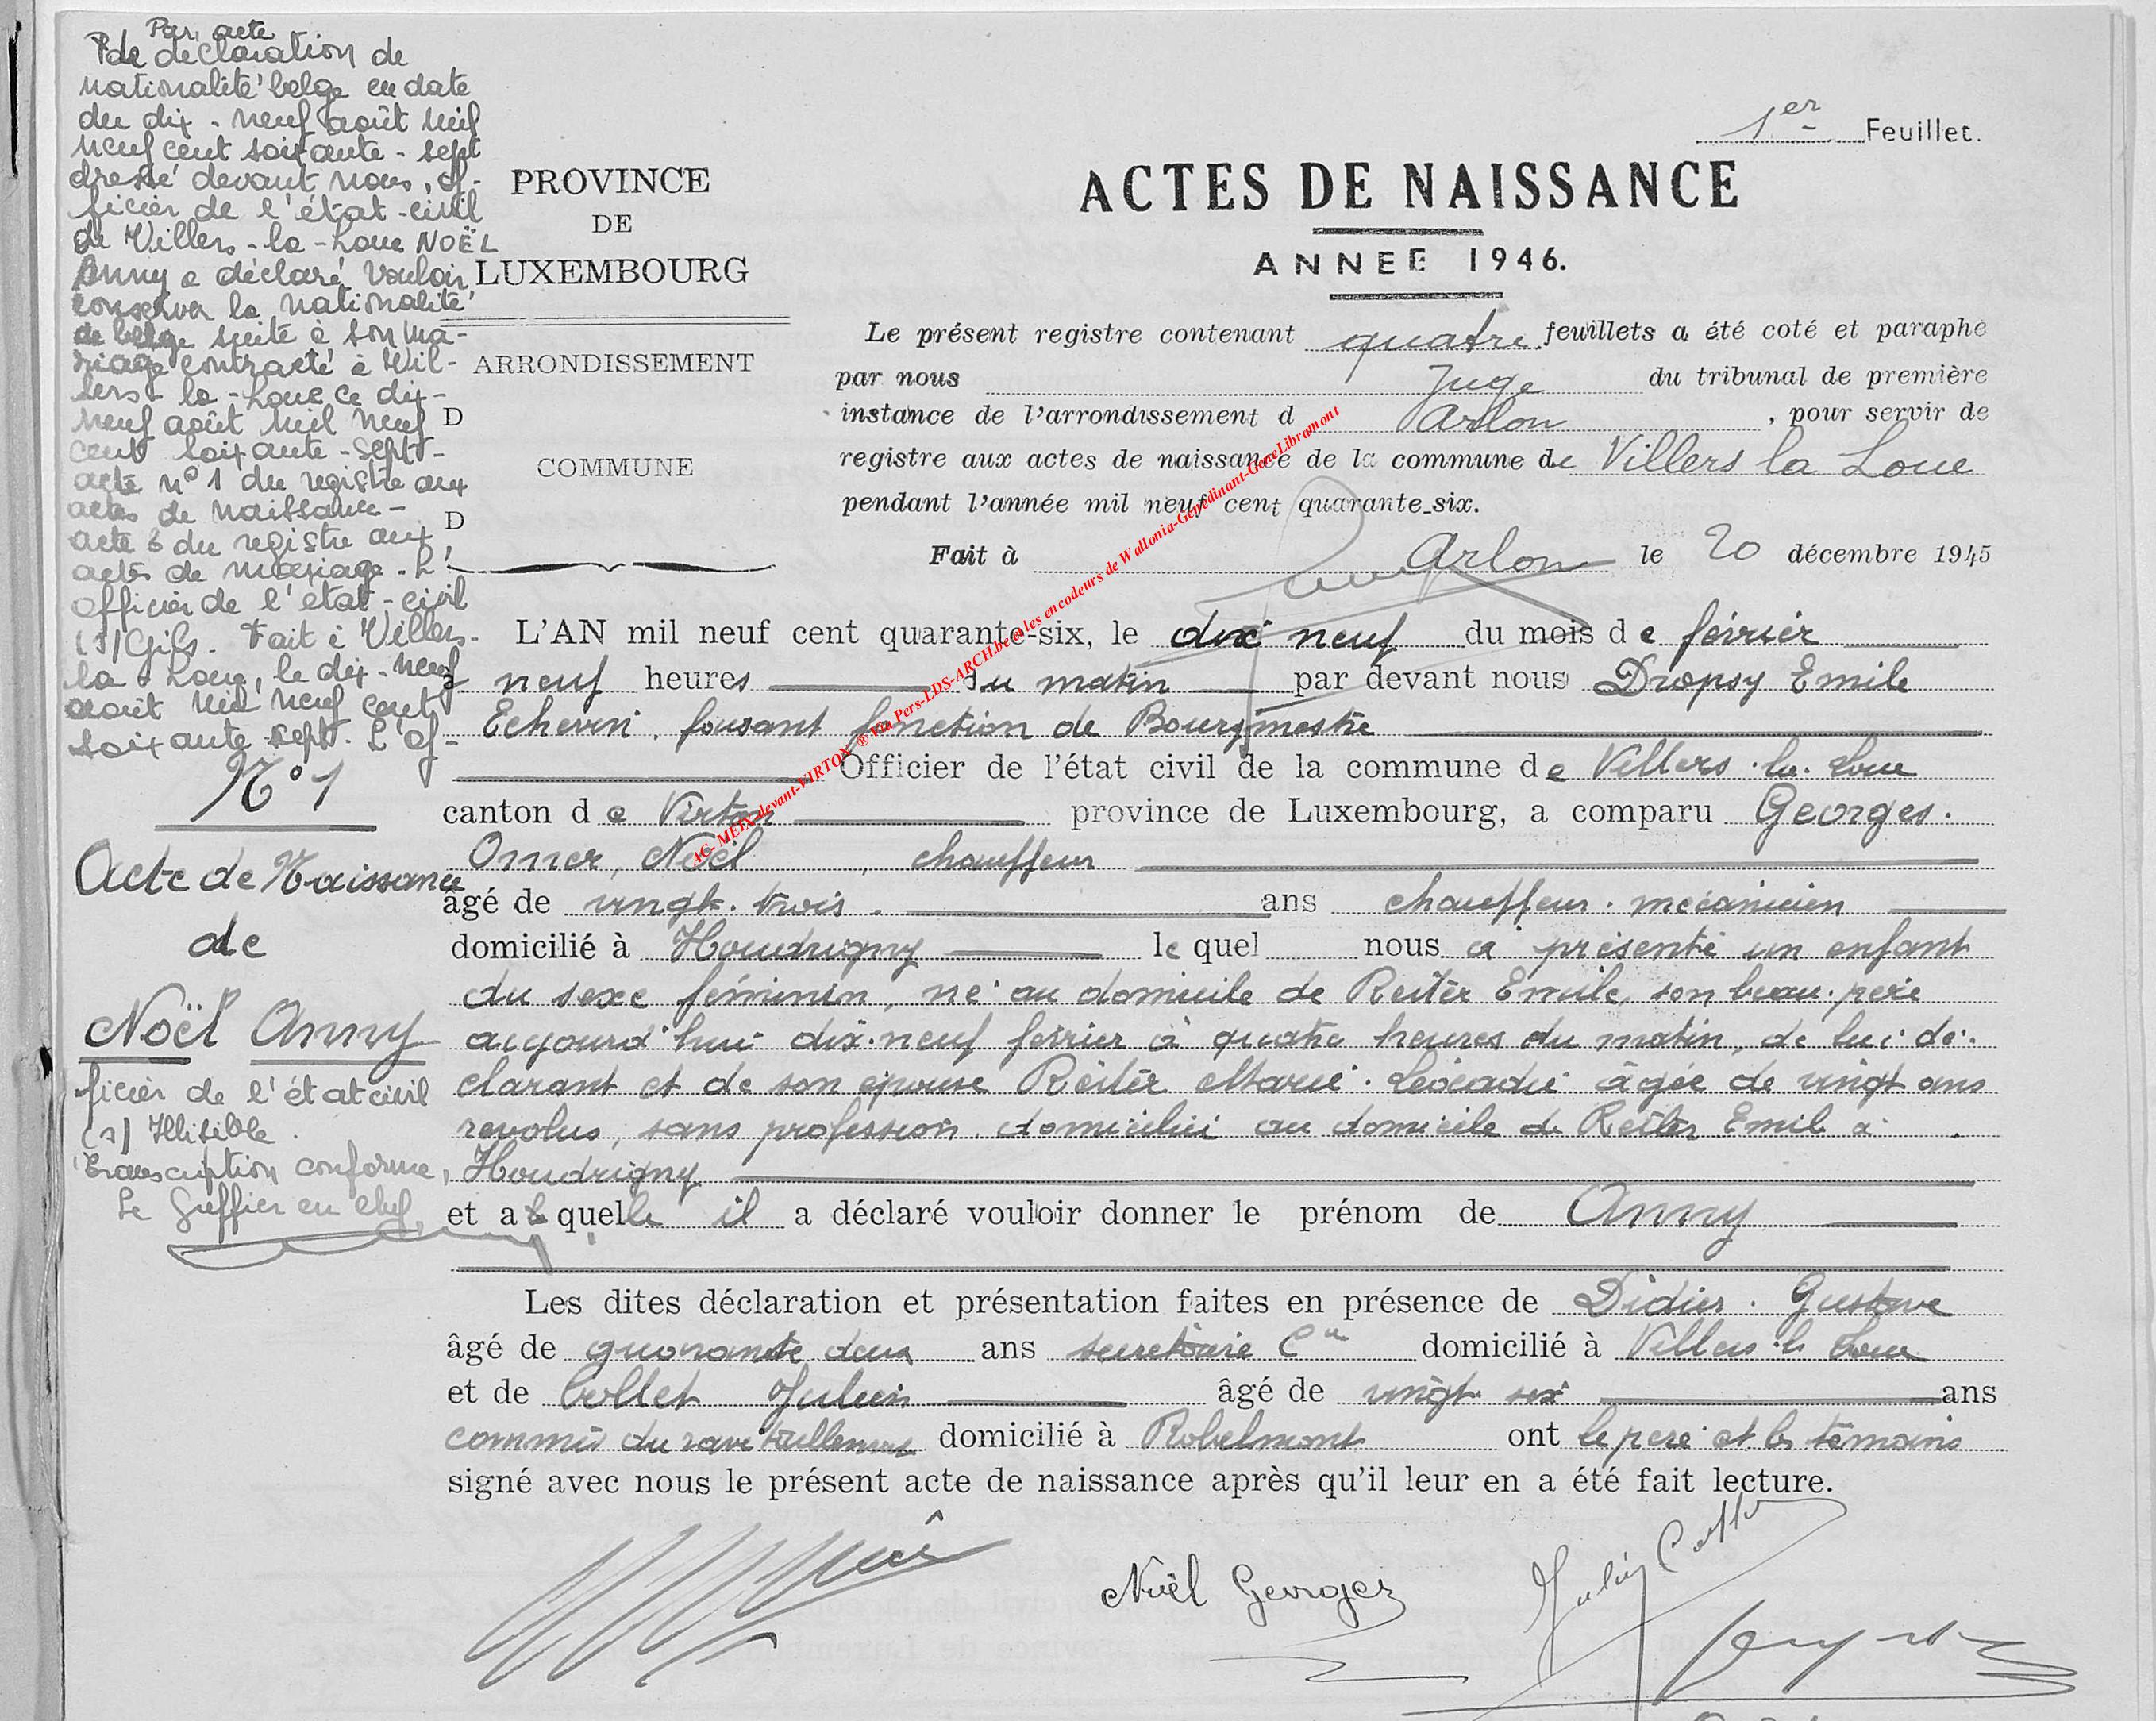 Par acte
de déclaration de
nationalité belge en date
du dix-neuf août mil
neuf cent soixante-sept
dressé devant nous, of-
ficier de l'état-civil
de Villers-la-Loue NOËL
Anny a déclaré vouloir
conserver la nationalité
belge suite à son ma-
riage contracté à Vil-
lers-la-Loue ce dix-
neuf août mil neuf
cent soixante-sept-
acte n° 1 du registre aux
actes de naissance-
acte 6 du registre aux
actes de mariage. L'
officier de l'état-civil
(s) Gils. Fait à Villers-
la-Loue, le dix-neuf
août mil neuf cent
soixante-sept. L'of-
N° 1
Acte de Naissance
de
Noël Anny
ficier de l'état civil
(s) Illisible.
Transcription conforme,
Le Greffier en chef,
PROVINCE
DE
LUXEMBOURG
ARRONDISSEMENT
D
COMMUNE
D
1er Feuillet.
ACTES DE NAISSANCE
ANNEE 1946.
Le présent registre contenant quatre feuillets a été coté et paraphé
par nous Juge du tribunal de première
instance de l'arrondissement d Arlon, pour servir de
registre aux actes de naissance de la commune de Villers la Loue
pendant l'année mil neuf cent quarante-six.
Fait à Arlon le 20 décembre 1945
L'AN mil neuf cent quarante-six, le dix neuf du mois de février
à neuf heures du matin par devant nous Dropsy Emile
Echevin, faisant fonction de Bourgmestre
Officier de l'état civil de la commune de Villers-la-Loue
canton de Virton province de Luxembourg, a comparu Georges.
Omer, Noël, chauffeur
âgé de vingt-trois. ans chauffeur-mécanicien
domicilié à Houdrigny lequel nous a présenté un enfant
du sexe féminin, né au domicile de Reiter Emile, son beau-père
aujourd'hui dix-neuf février à quatre heures du matin, de lui dé-
clarant et de son épouse Reiter Marie-Léocadie âgée de vingt ans
révolus, sans profession, domiciliée au domicile de Reiter Emil à
Houdrigny
et a laquelle il a déclaré vouloir donner le prénom de Anny
Les dites déclaration et présentation faites en présence de Didier. Gustave
âgé de quarante deux ans secrétaire Cal domicilié à Villers-la-Loue
et de Collet Julien âgé de vingt six ans
commis du ravitaillement domicilié à Robelmont ont le père et les témoins
signé avec nous le présent acte de naissance après qu'il leur en a été fait lecture.
Noël Georges
Julien Collet
AC_MEIX-devant-VIRTON ® via Pers-LDS-ARCH.be et les encodeurs de Wallonia-Genedinant-GeneLibramont